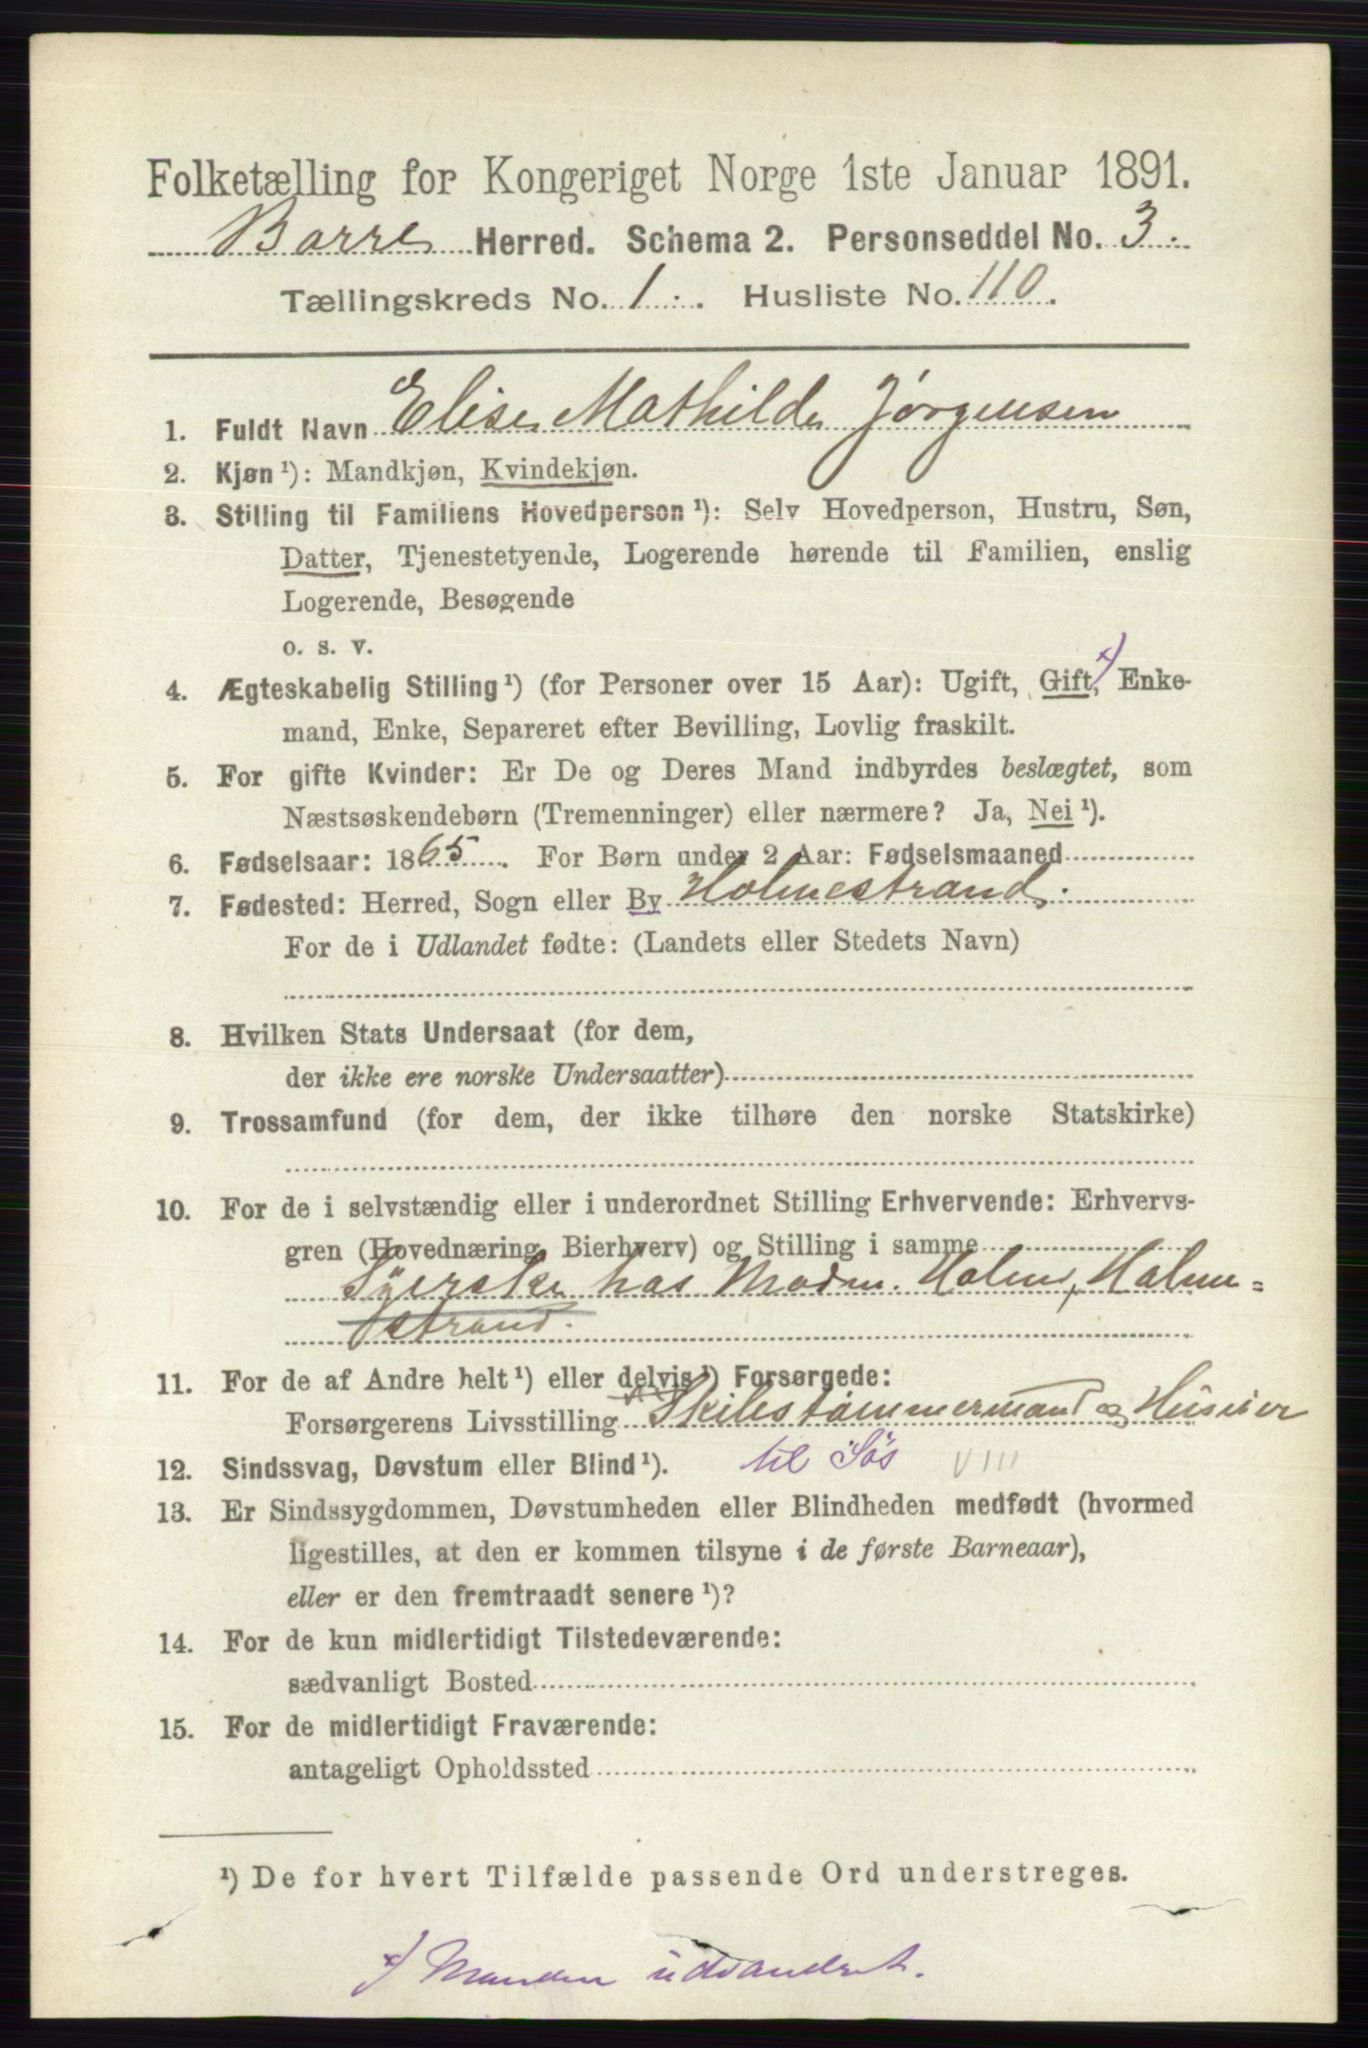 Folketælling for Kongeriget Norge 1ste Januar 1891.
Borre Herred. Schema 2. Personseddel No. 3.
Tællingskreds No. 1. Husliste No. 110.
1. Fuldt Navn Elise Mathilde Jørgensen
2. Kjøn ¹): Mandkjøn, Kvindekjøn.
3. Stilling til Familiens Hovedperson ¹): Selv Hovedperson, Hustru, Søn,
Datter, Tjenestetyende, Logerende hørende til Familien, enslig
Logerende, Besøgende
o. s. v.
4. Ægteskabelig Stilling ¹) (for Personer over 15 Aar): Ugift, Gift, x) Enke-
mand, Enke, Separeret efter Bevilling, Lovlig fraskilt.
5. For gifte Kvinder: Er De og Deres Mand indbyrdes beslægtet, som
Næstsøskendebørn (Tremenninger) eller nærmere? Ja, Nei ¹).
6. Fødselsaar: 1865. For Børn under 2 Aar: Fødselsmaaned
7. Fødested: Herred, Sogn eller By Holmestrand.
For de i Udlandet fødte: (Landets eller Stedets Navn)
8. Hvilken Stats Undersaat (for dem,
der ikke ere norske Undersaatter)
9. Trossamfund (for dem, der ikke tilhøre den norske Statskirke)
10. For de i selvstændig eller i underordnet Stilling Erhvervende: Erhvervs-
gren (Hovednæring, Bierhverv) og Stilling i samme
Syerske hos Madm. Holm, Holm=
strand.
11. For de af Andre helt ¹) eller delvis ¹) Forsørgede:
Forsørgerens Livsstilling Skibstømmermand og Huseier
12. Sindssvag, Døvstum eller Blind ¹). til Søs VIII
13. Er Sindssygdommen, Døvstumheden eller Blindheden medfødt (hvormed
ligestilles, at den er kommen tilsyne i de første Barneaar),
eller er den fremtraadt senere ¹)?
14. For de kun midlertidigt Tilstedeværende:
sædvanligt Bosted
15. For de midlertidigt Fraværende:
antageligt Opholdssted
¹) De for hvert Tilfælde passende Ord understreges.
x) Manden udvandret.